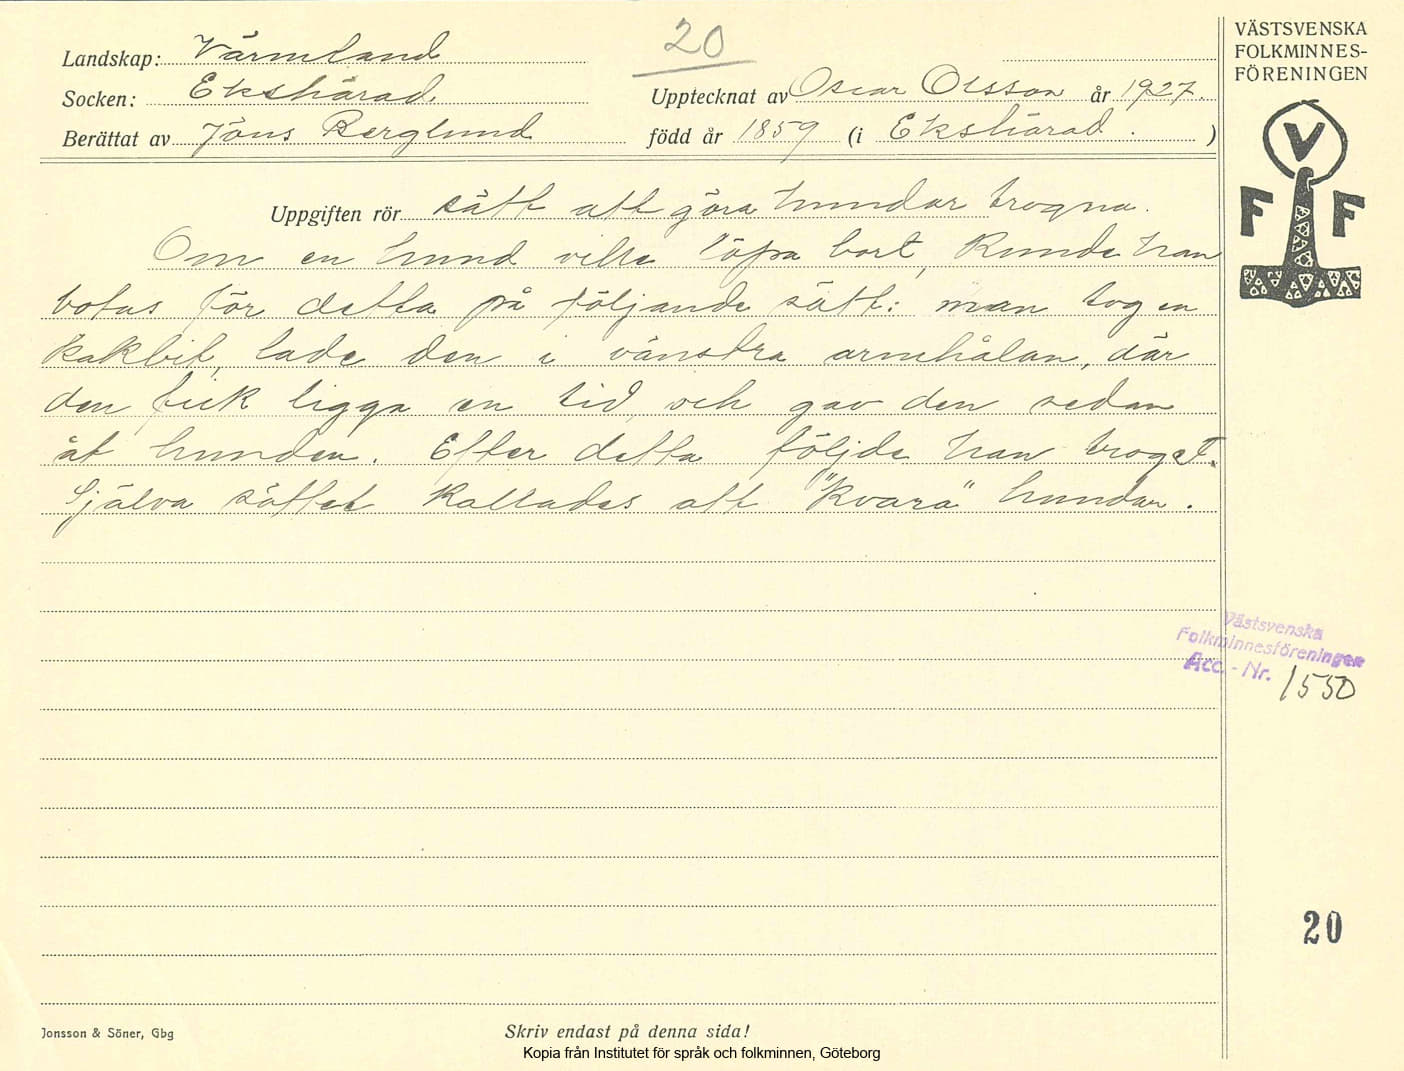 20
Landskap: Värmland
Socken: Ekshärad.
Upptecknat av Oscar Olsson år 1927.
Berättat av Jöns Berglund född år 1859 (i Ekshärad. )
VÄSTSVENSKA
FOLKMINNES-
FÖRENINGEN
V
F F
Uppgiften rör sätt att göra hundar trogna.
Om en hund ville löpa bort, kunde han
botas för detta på följande sätt: man tog en
kakbit, lade den i vänstra armhålan, där
den fick ligga en tid, och gav den sedan
åt hunden. Efter detta följde han troget.
Själva sättet kallades att "kvara" hundar.
Västsvenska
Folkminnesföreningen
Acc.-Nr. 1550
20
Jonsson & Söner, Gbg
Skriv endast på denna sida!
Kopia från Institutet för språk och folkminnen, Göteborg